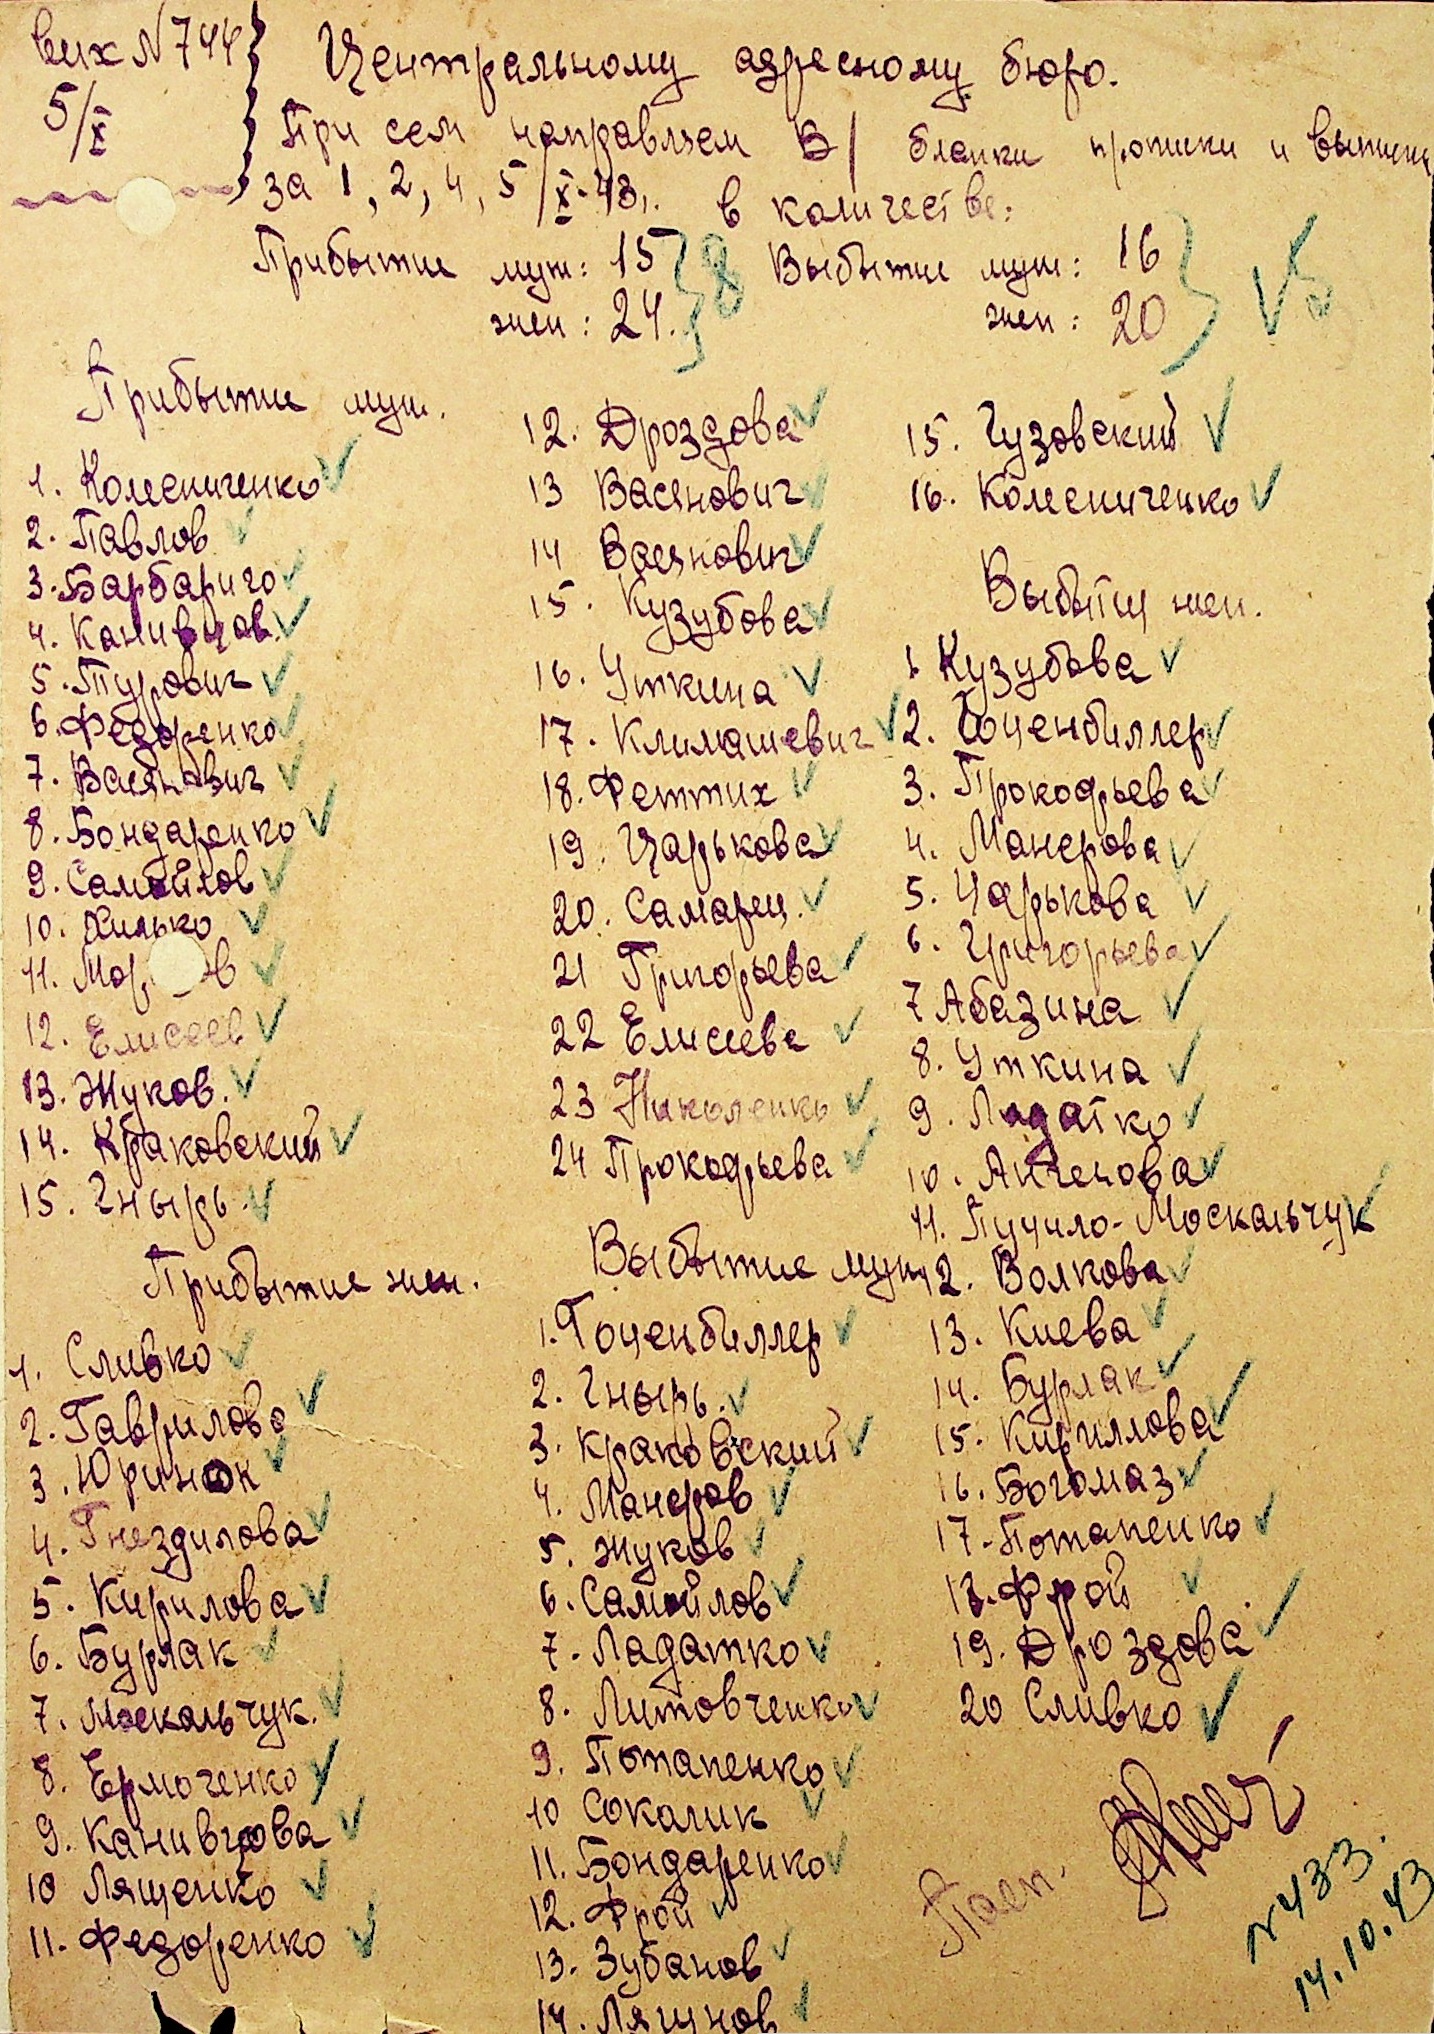 вих N 744
5/X
Центральному адресному бюро.
При сем направляем В/ бланки прописки и выписки
за 1, 2, 4, 5/X-43г. в количестве:
Прибытие муж: 15 Выбытие муж: 16
жен: 24. жен: 20
Прибытие муж.
1. Колесниченко
2. Павлов
3. Барбариго
4. Канивцов
5. Турович
6. Федоренко
7. Васянович
8. Бондаренко
9. Самойлов
10. Хилько
11.
12. Елисеев
13. Жуков.
14. Краковский
15. Гнырь.
Прибытие жен.
1. Сливко
2. Гаврилова
3. Юринок
4. Гнездилова
5. Кирилова
6. Бурлак
7. Москальчук.
8. Ермоченко
9. Канивцова
10 Лященко
11. Федоренко
12. Дроздова
13 Васянович
14 Васянович
15. Кузубова
16. Уткина
17. Климашевич
18. Феттих
19. Царькова
20. Самарец.
21 Григорьева
22 Елисеева
23 Николенко
24 Прокофьева
Выбытие муж
1. Гоценбиллер
2. Гнырь.
3. Краковский
4. Манеров
5. Жуков
6. Самойлов
7. Ладатко
8. Литовченко
9. Потапенко
10 Соколик
11. Бондаренко
12. Фрой
13. Зубанов
14. Лягунов
15. Гузовский
16. Колесниченко
Выбытии жен.
1 Кузубова
2. Гоценбиллер
3. Прокофьева
4. Манерова
5. Царькова
6. Григорьева
7 Абазина
8. Уткина
9. Ладатко
10. Ангелова
11. Пучило-Москальчук
12. Волкова
13. Киева
14. Бурлак
15. Кириллова
16. Богомаз
17. Потапенко
18. Фрой
19. Дроздова
20 Сливко
Пасп.
N 433.
14.10.43